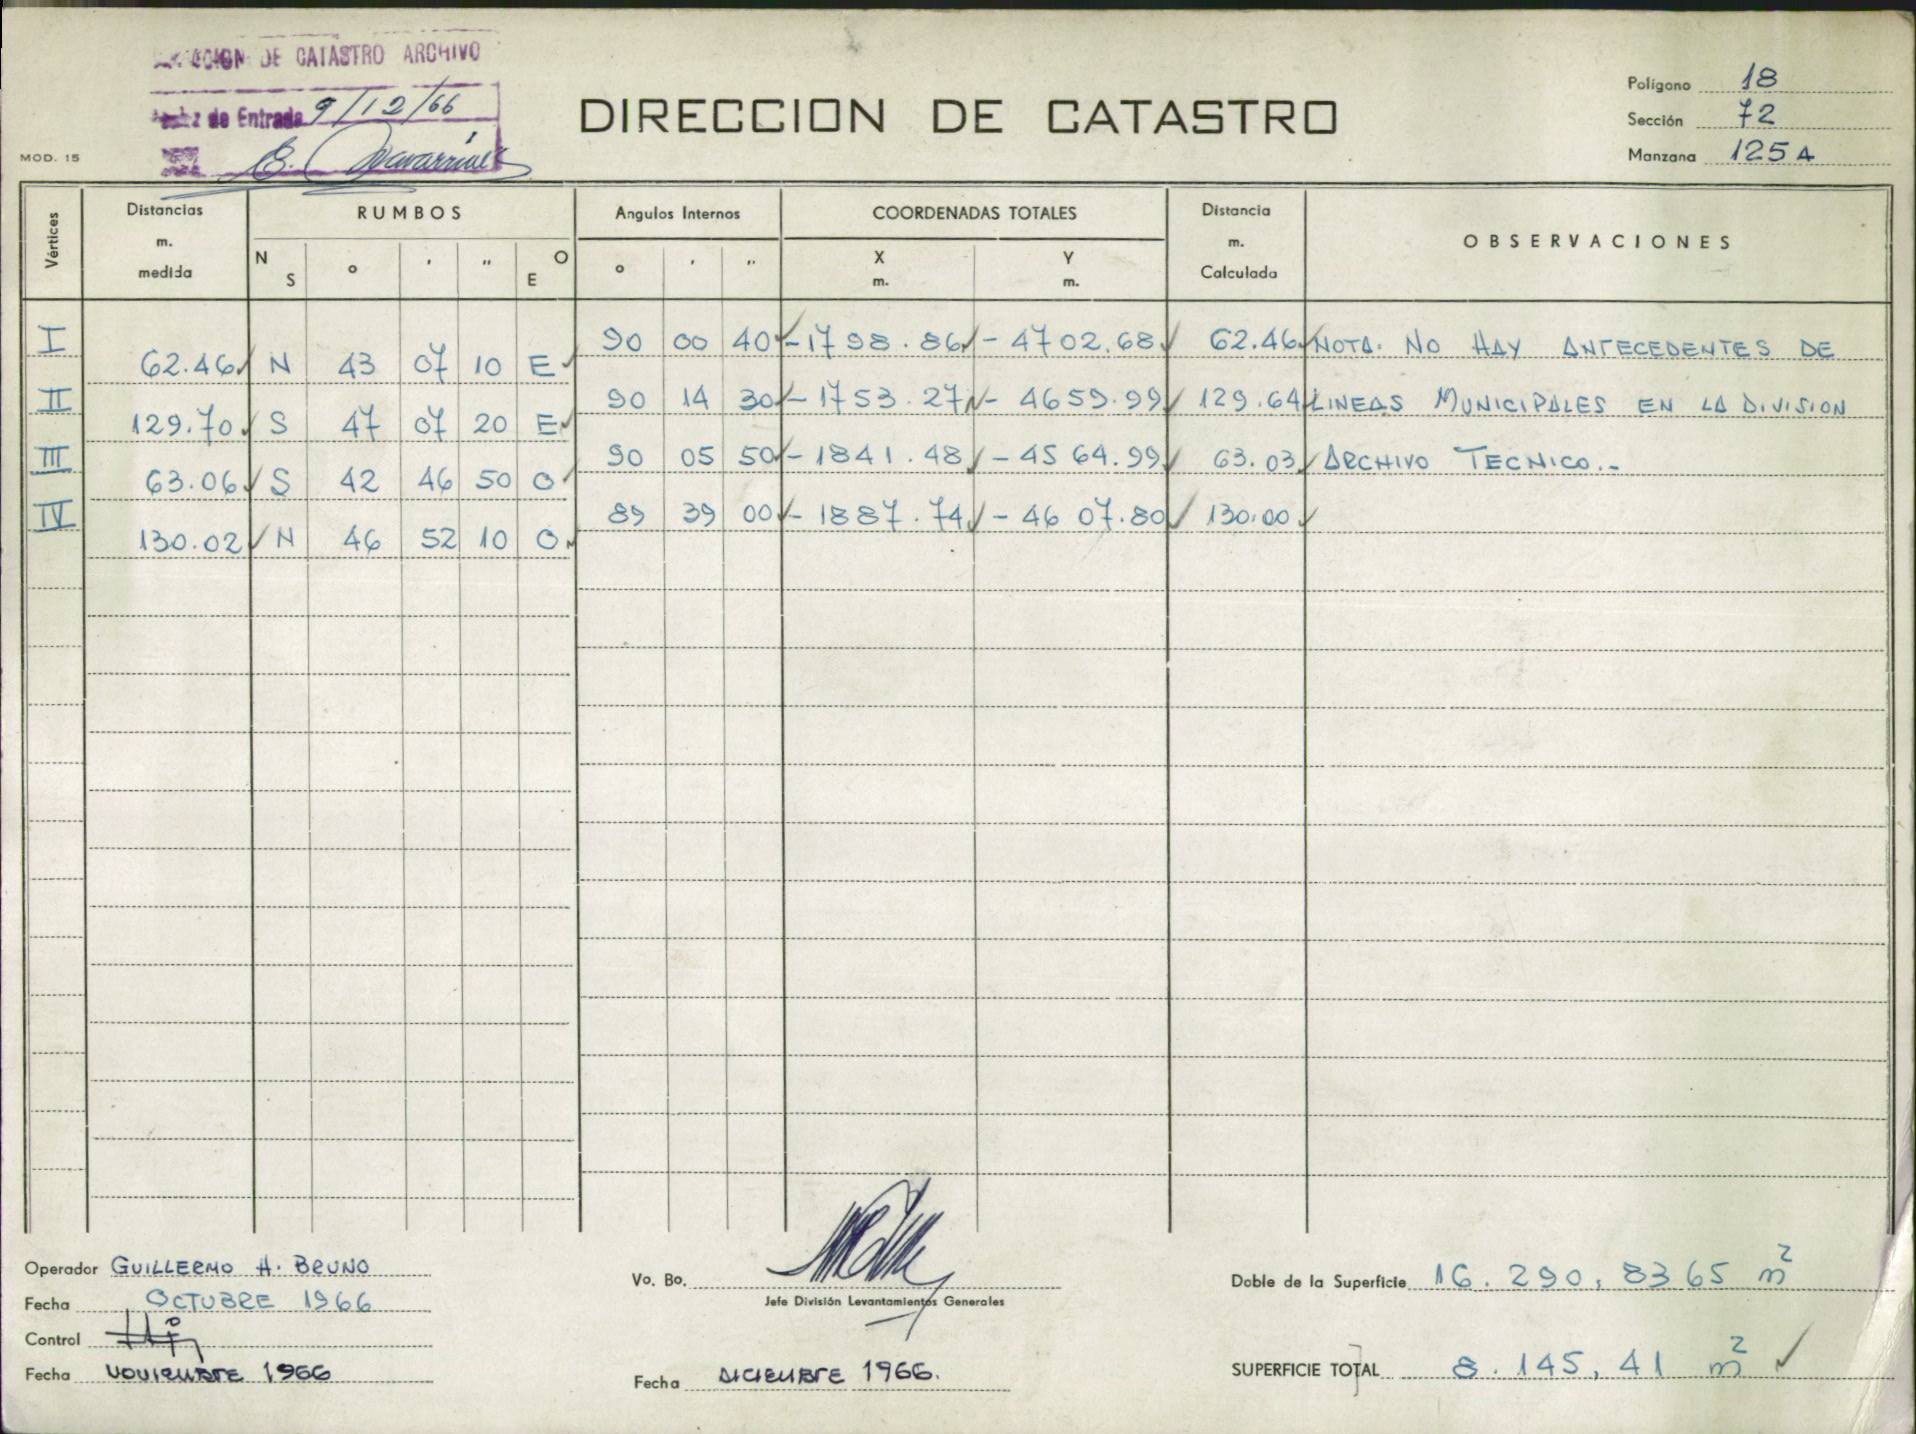 DE CATASTRO ARCHIVO
de Entrada 9/12/66
DIRECCION DE CATASTRO
Polígono 18
Sección 72
Manzana 125 A
MOD. 15
Vértices
Distancias m. medida
RUMBOS
N S o ' " O E
Angulos Internos
o ' "
COORDENADAS TOTALES
X m. Y m.
Distancia m. Calculada
OBSERVACIONES
I 90 00 40 -1798.86 -4702.68 62.46 NOTA. NO HAY ANTECEDENTES DE
62.46 N 43 07 10 E
II 90 14 30 -1753.27 -4659.99 129.64 LINEAS MUNICIPALES EN LA DIVISION
129.70 S 47 07 20 E
III 90 05 50 -1841.48 -4564.99 63.03 ARCHIVO TECNICO.-
63.06 S 42 46 50 O
IV 89 39 00 -1887.74 -4607.80 130.00
130.02 N 46 52 10 O
Operador GUILLERMO H. BRUNO
Fecha OCTUBRE 1966
Control
Fecha NOVIEMBRE 1966
Vo. Bo.
Jefe División Levantamientos Generales
Fecha DICIEMBRE 1966.
Doble de la Superficie 16.290,8365 m²
SUPERFICIE TOTAL 8.145,41 m²